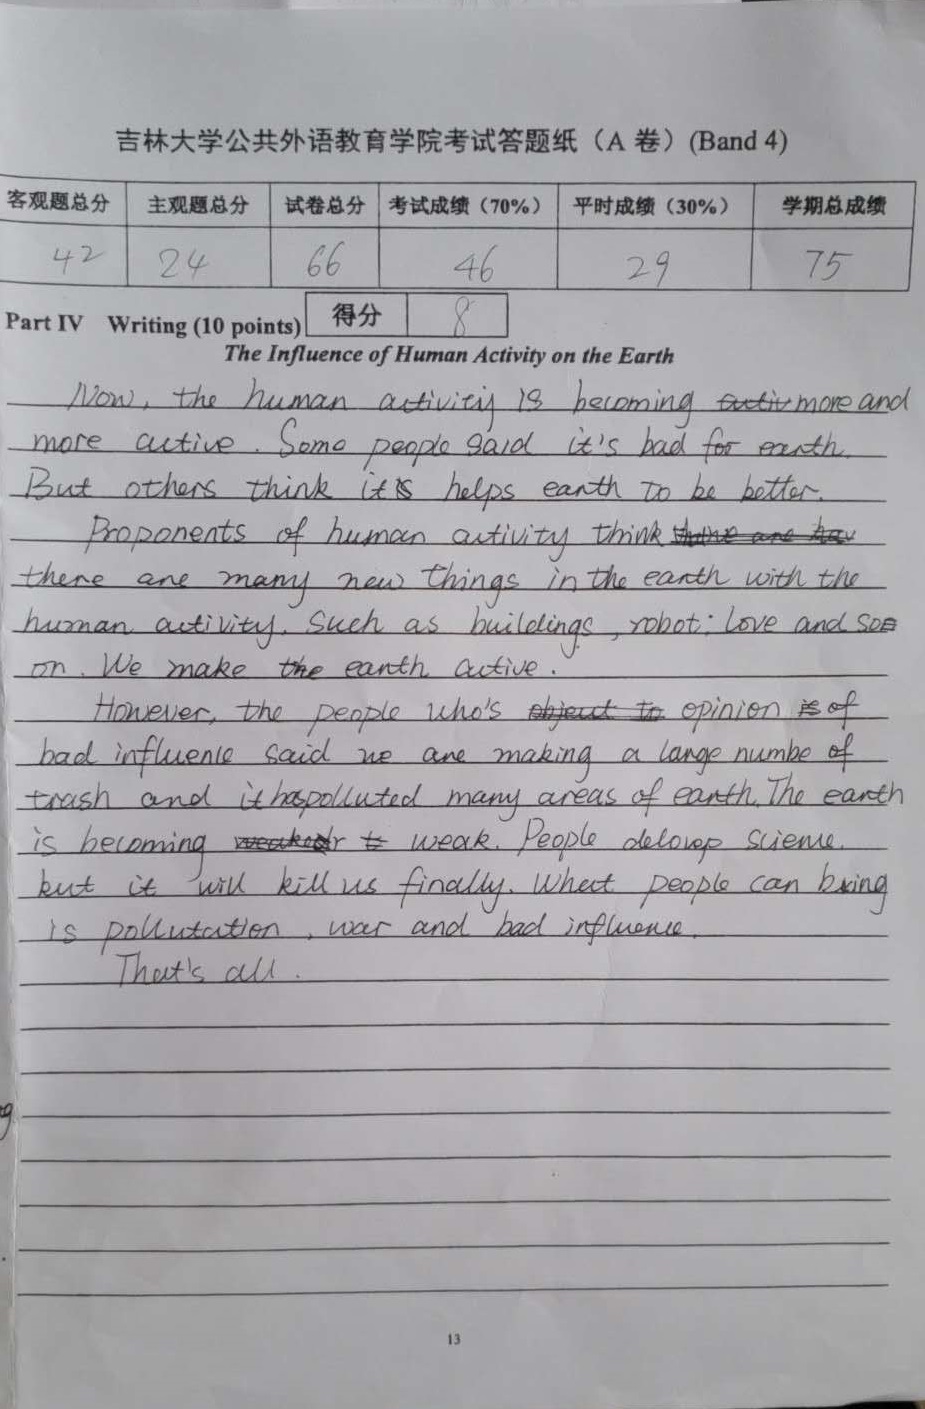 吉林大学公共外语教育学院考试答题纸（A 卷）(Band 4)
客观题总分 主观题总分 试卷总分 考试成绩（70%） 平时成绩（30%） 学期总成绩
42 24 66 46 29 75
Part IV Writing (10 points) 得分 8
The Influence of Human Activity on the Earth
Now, the human activity is becoming more and
more active. Some people said it's bad for earth.
But others think it is helps earth to be better.
Proponents of human activity think
there are many new things in the earth with the
human activity. Such as buildings, robot, love and so
on. We make the earth active.
However, the people who's opinion is of
bad influence said we are making a large numbe of
trash and it has polluted many areas of earth. The earth
is becoming weak. People delovep science.
but it will kill us finally. What people can bring
is pollutation, war and bad influence.
That's all.
13